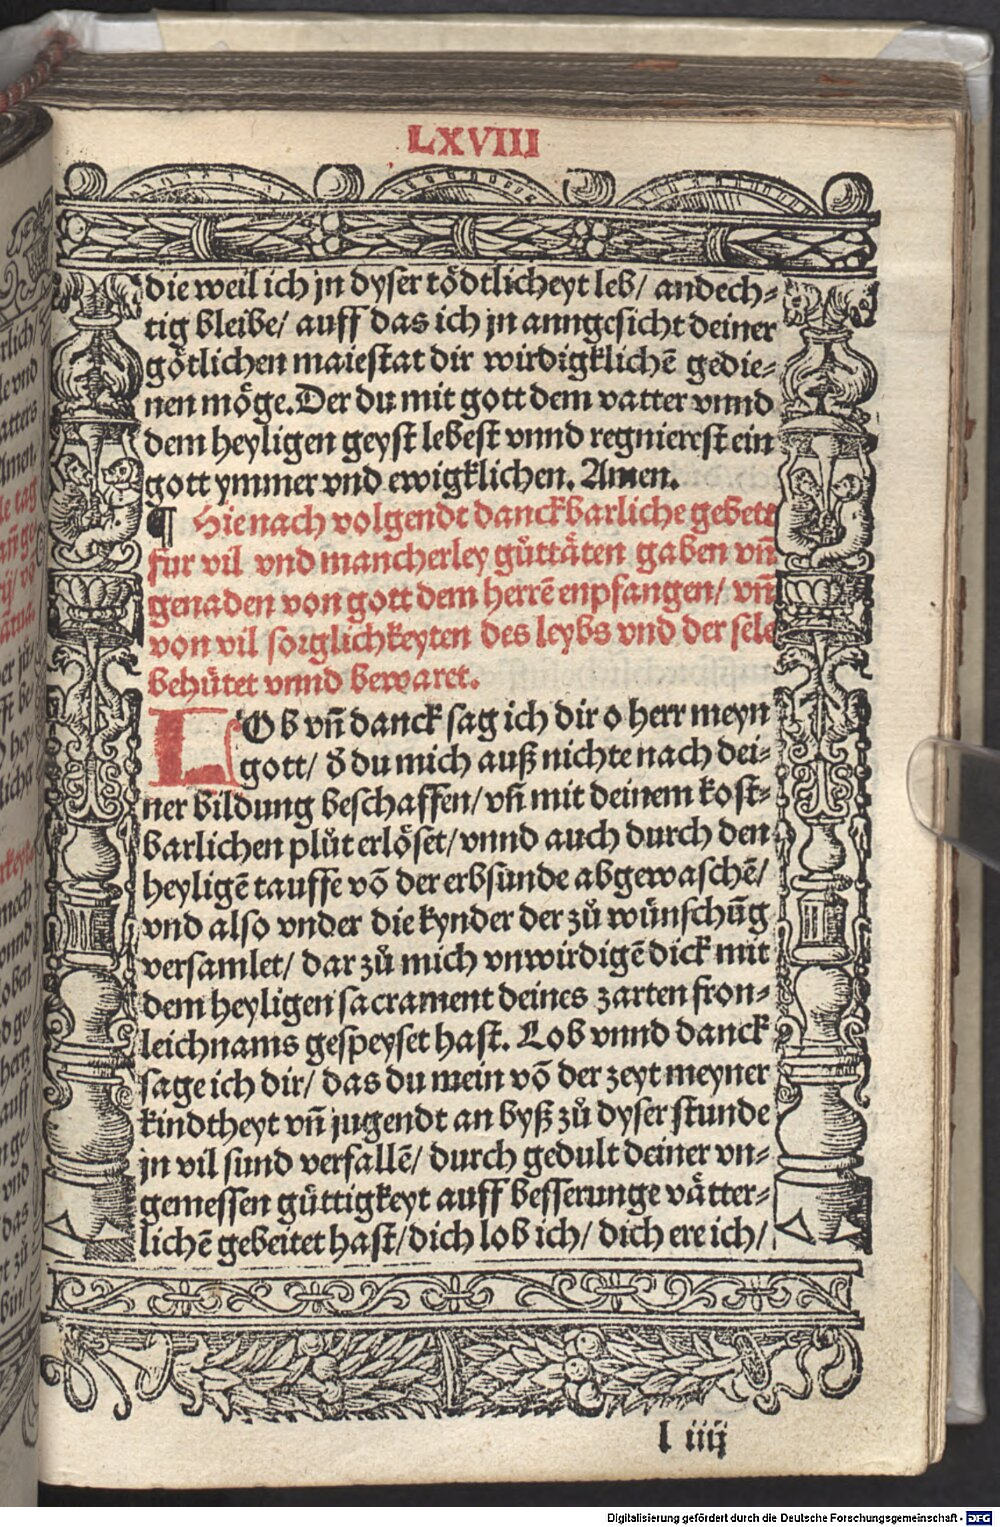 LXVIII
die weil ich jn dyser tödtlicheyt leb/ andech⸗
tig bleibe/ auff das ich jn anngesicht deiner
götlichen maiestat dir wirdigklichē gedie⸗
nen möge. Der du mit gott dem vatter vnnd
dem heyligen geyst lebest vnnd regnierest ein
gott ymmer vnd ewigklichen. Amen.
¶ Hie nach volgendt danckbarliche gebett
fur vil vnd mancherley gůttäten gaben vñ
genaden von gott dem herrē enpfangen/ vñ
von vil sorglichkeyten des leybs vnd der sele
behütet vnnd bewaret.
LOb vñ danck sag ich dir o herr meyn
gott/ d̕ du mich auß nichte nach dei⸗
ner bildung beschaffen/ vñ mit deinem kost⸗
barlichen plůt erlöset/ vnnd auch durch den
heyligē tauffe võ der erbsunde abgewaschē/
vnd also vnder die kynder der zů wünschūg
versamlet/ dar zů mich vnwirdigē dick mit
dem heyligen sacrament deines zarten fron⸗
leichnams gespeyset hast. Lob vnnd danck
sage ich dir/ das du mein võ der zeyt meyner
kindtheyt vñ jugendt an byß zů dyser stunde
jn vil sund verfallē/ durch gedult deiner vn⸗
gemessen gůttigkeyt auff besserunge vätter⸗
lichē gebeitet hast/ dich lob ich/ dich ere ich/
l iiij
rlich/
le vnd
atters
Amen.
le tag
er jü⸗
lliche
mech
vnnd
loben
d ge⸗
auff
n ge⸗
vnd
das
t zů
bin/
Digitalisierung gefördert durch die Deutsche Forschungsgemeinschaft - DFG